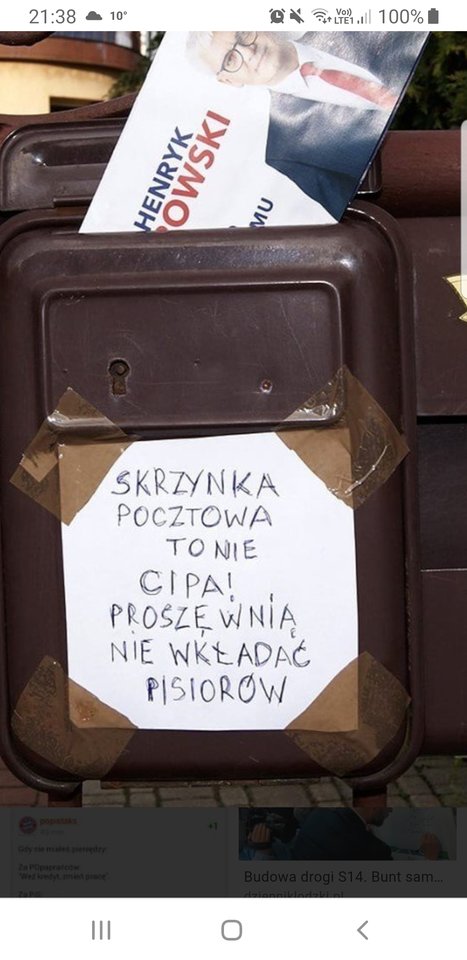 21:38 10° Vo)) LTE1 100%
HENRYK
OWSKI
MU
SKRZYNKA
POCZTOWA
TO NIE
CIPA!
PROSZĘ W NIĄ
NIE WKŁADAĆ
PISIORÓW
popistaks
+1
Gdy nie miałeś pieniędzy:
Za POpaprańców:
"Weź kredyt, zmień pracę"
Za PiS:
Budowa drogi S14. Bunt sam...
dzienniklodzki.pl